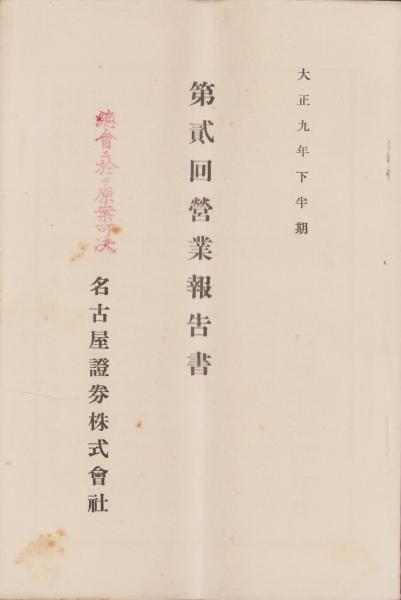 大正九年下半期
第貳回營業報告書
總會ニ於テ原案可決
名古屋證券株式會社